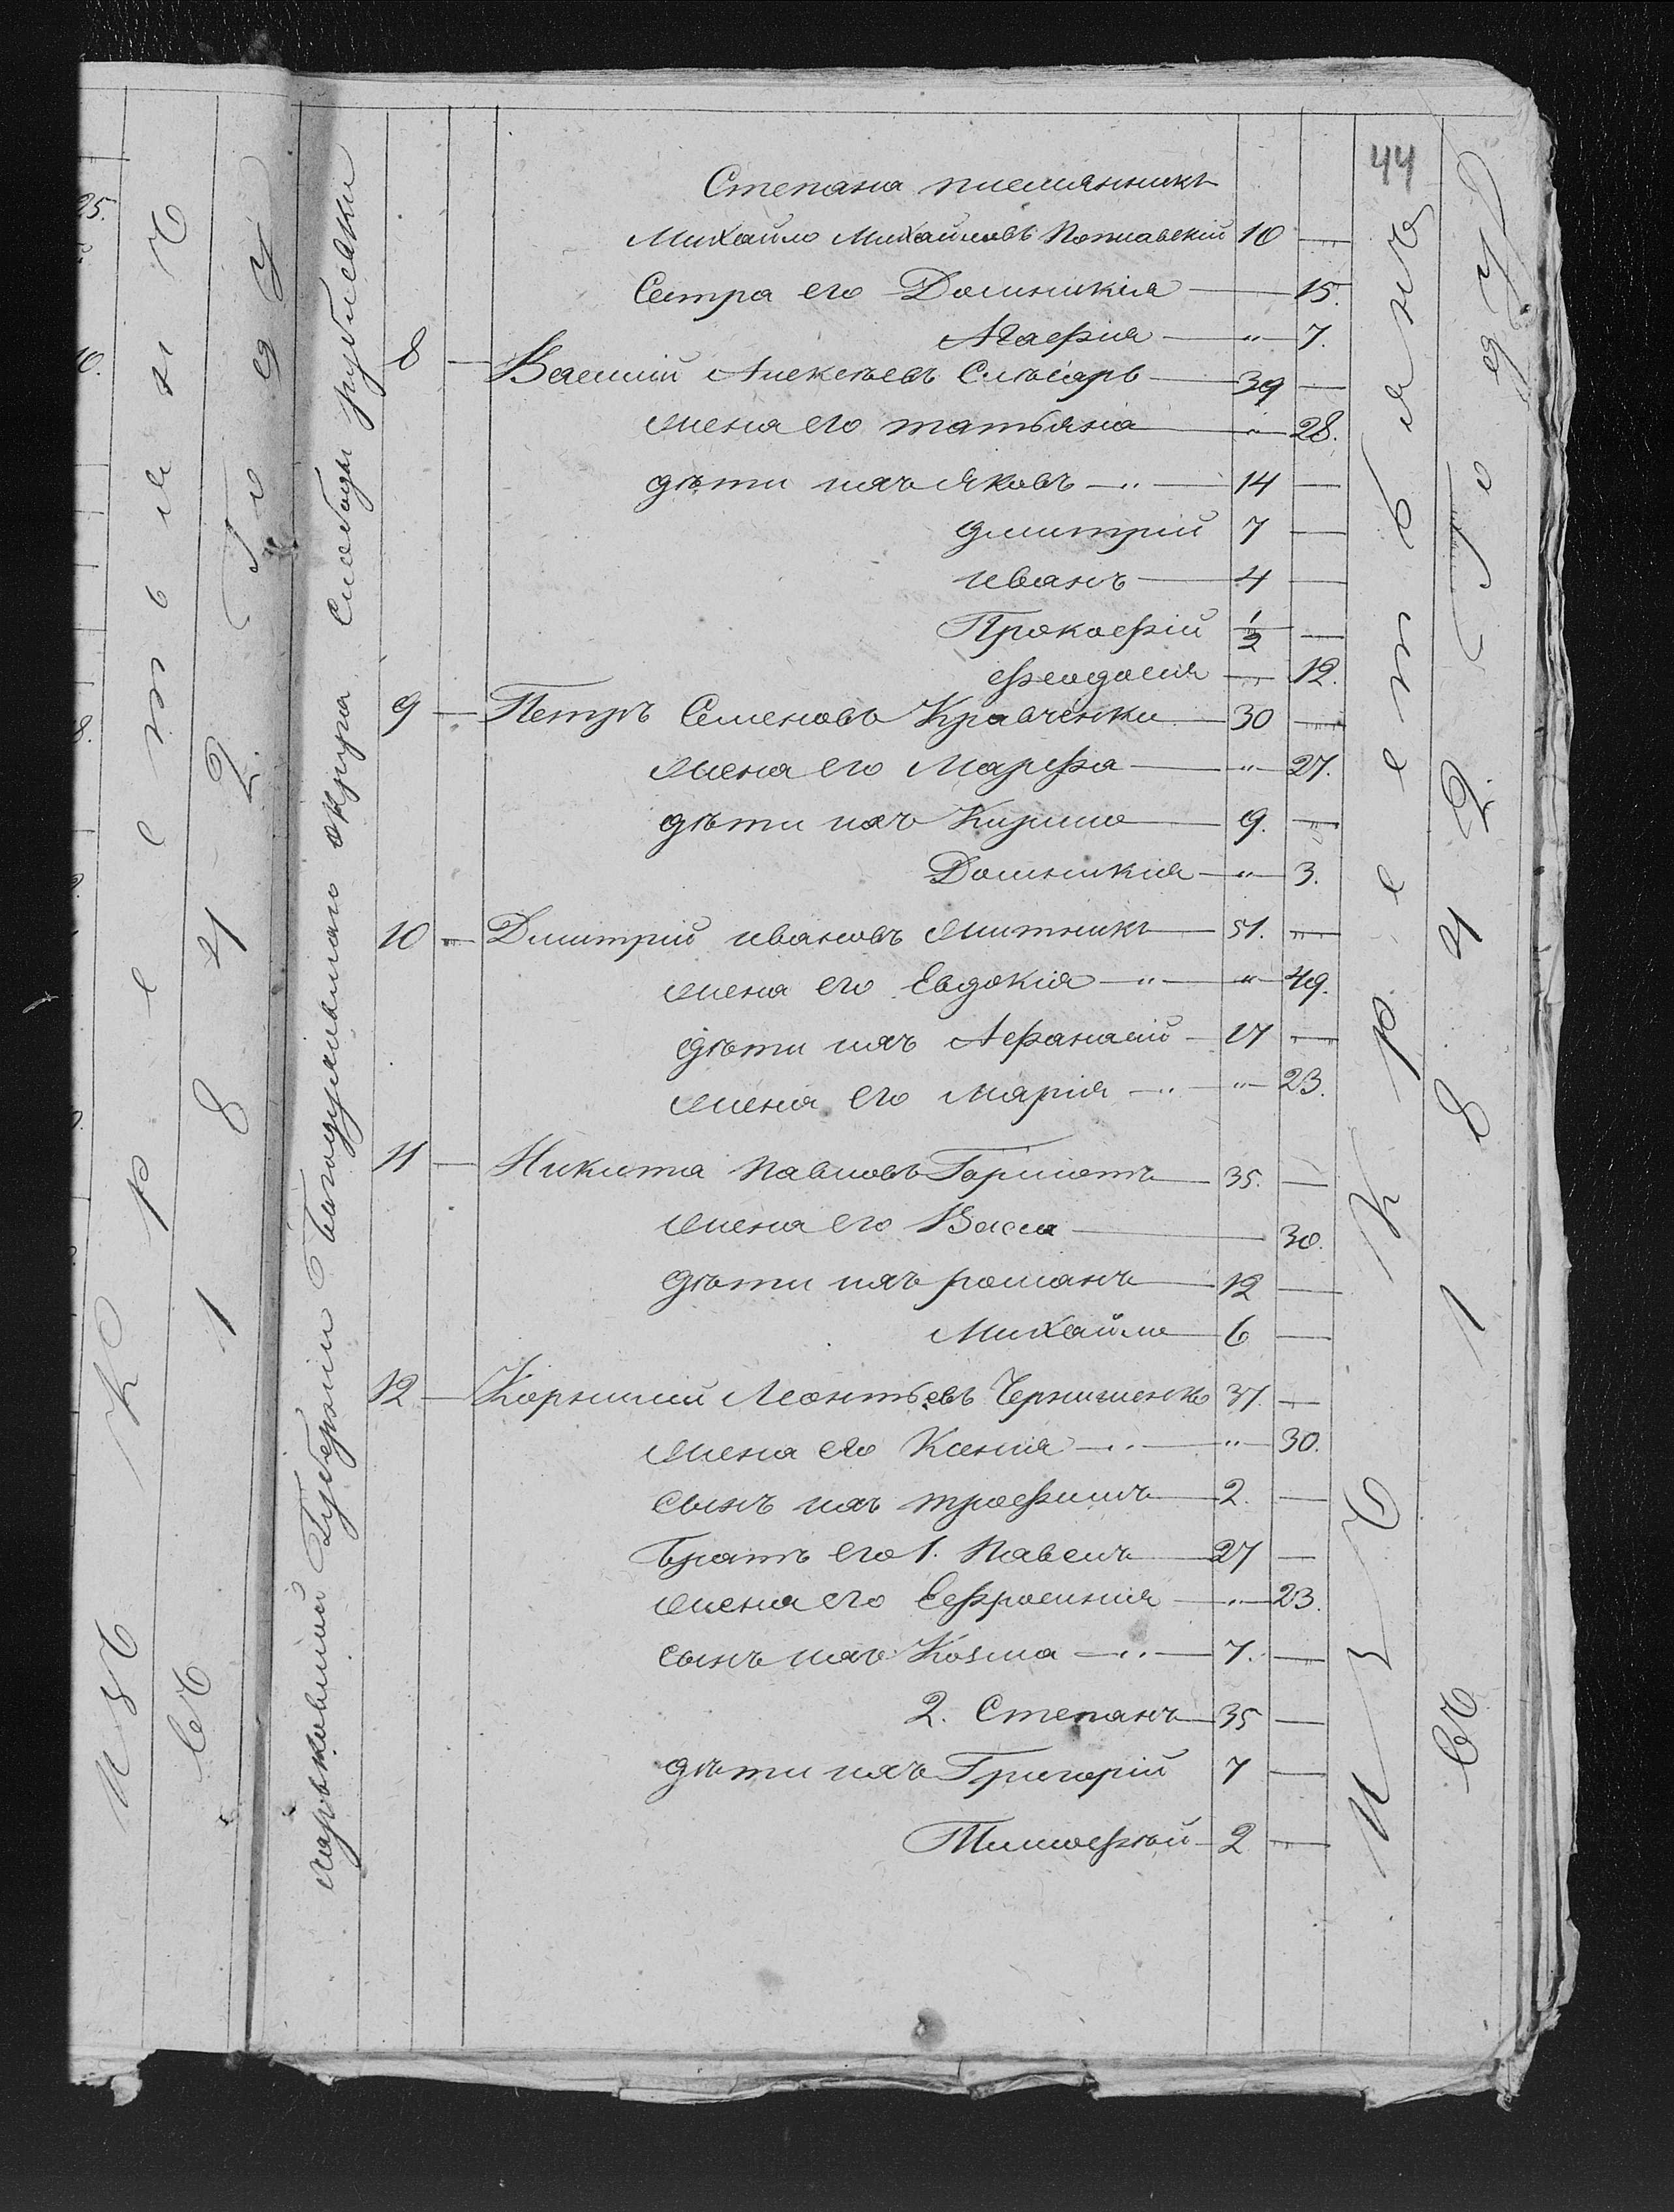 44
Степана племянникъ
Михайло Михайловъ Поплавскій 10 —
Сестра его Домникія — 15.
Агафія — " — 7.
8 — Василий Алексѣевъ Слѣсарь — 39 —
жена его татьяна — " — 28.
дѣти ихъ Яковъ — " — 14 —
дмитрій 7 —
иванъ — 4 —
Прокофій 1/2 —
Феодосия — " — 12.
9 — Петръ Семеновъ Кравченки — 30 —
жена его Марфа — " — 27.
дѣти ихъ Кирило — 9. —
Домникия — " — 3.
10 — Дмитрий ивановъ Житникъ — 51. —
жена его Евдокія — " — " — 49.
дѣти ихъ Афанасій — 17 —
жена его Марія — " — " — 23.
11 — Никита Павловъ — 35. —
жена его Васса — 30.
дѣти ихъ романъ — 12 —
Михайло — 6 —
12 — Корнилий Леонтьевъ 37. —
жена его Ксения — " — " — 30.
сынъ ихъ трофимъ — 2. —
Братъ его 1. Павелъ — 27 —
жена его Ефросиния — " — 23.
сынъ ихъ Козма — " — 7. —
2. Степанъ — 35 —
дѣти ихъ Григорій 7 —
Тимофѣй — 2 —
Харьковской Губерніи Богодуховскаго округа Слободы рублевки
изъ крестьянъ
въ 1842. Году
25.
10.
8.
изъ крестьянъ
въ 1842. Году